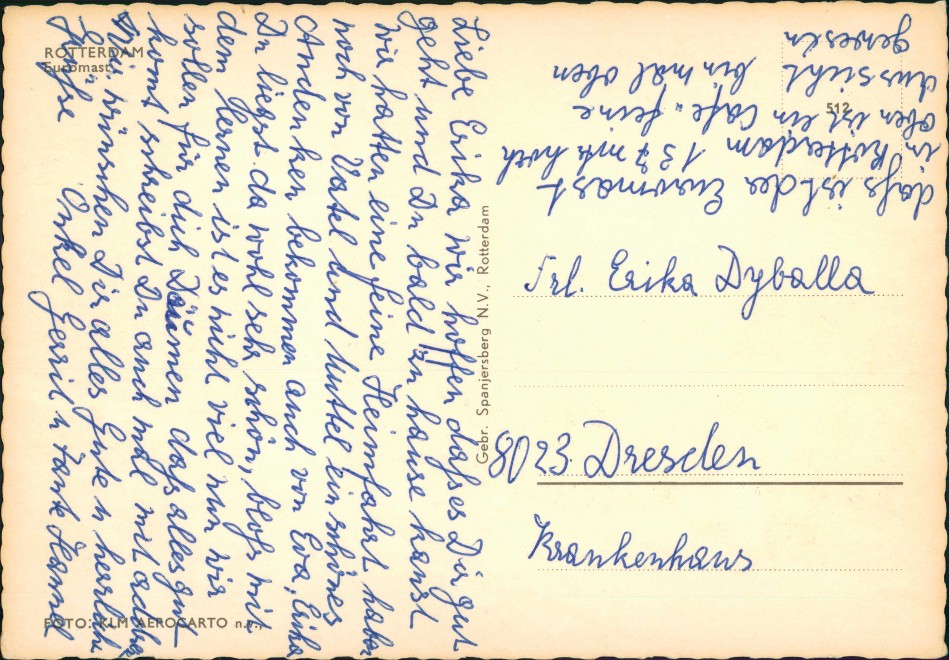 ROTTERDAM
Euromast
Liebe Erika wir hoffen dahses Dir gut
geht und Du bald zu hause kanst
wir hatten eine feine Heimfahrt haben
noch von Vatel und Muttel ein schönes
Andenken bekommen auch von Eva, Erika
Du liegst da wohl sehr schön, blohs mit
dem lernen ist es nicht viel nun wir
sollen für dich Däumen dahs alles gut
komt schreibst Du auch mal mit
Wir wünschen Dir alles Gute u herzliche
Grühse Onkel Gerrit u Tante Hannel
FOTO: KLM AEROCARTO n.v.,
Gebr. Spanjersberg N.V., Rotterdam
512
dahs ist der Euromast
in Rotterdam 137 mtr hoch
oben ist ein Cafe feine
Aussicht bin mal oben
gewesen
Frl. Erika Dyballa
8023 Dresden
Krankenhaus